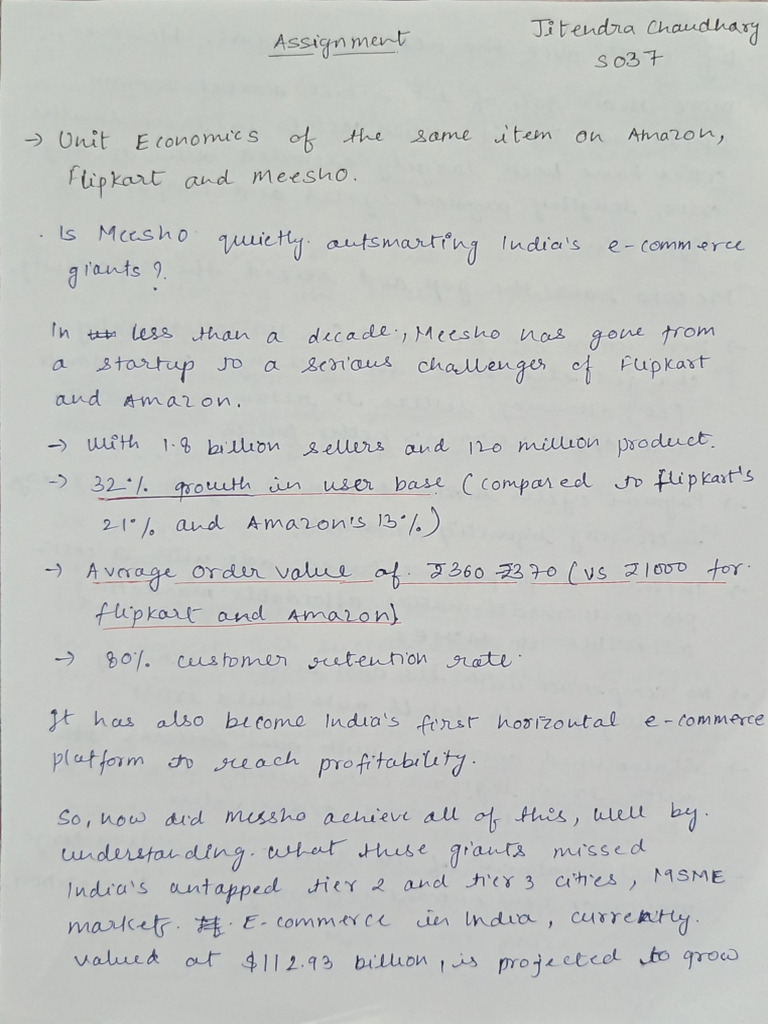 Assignment
Jitendra Chaudhary
S037
→ Unit Economics of the same item on Amazon,
Flipkart and Meesho.
. Is Meesho quietly outsmarting India's e-commerce
giants?
In less than a decade, Meesho has gone from
a startup to a serious challenger of Flipkart
and Amazon.
→ With 1.8 billion sellers and 120 million product.
→ 32% growth in user base (compared to flipkart's
21% and Amazon's 13%)
→ Average order value of ₹360 ₹370 (vs ₹1000 for
flipkart and Amazon)
→ 80% customer retention rate.
It has also become India's first horizontal e-commerce
platform to reach profitability.
So, how did messho achieve all of this, well by.
understanding. what these giants missed
India's untapped tier 2 and tier 3 cities, MSME
markets. E-commerce in India, currently.
valued at $112.93 billion, is projected to grow